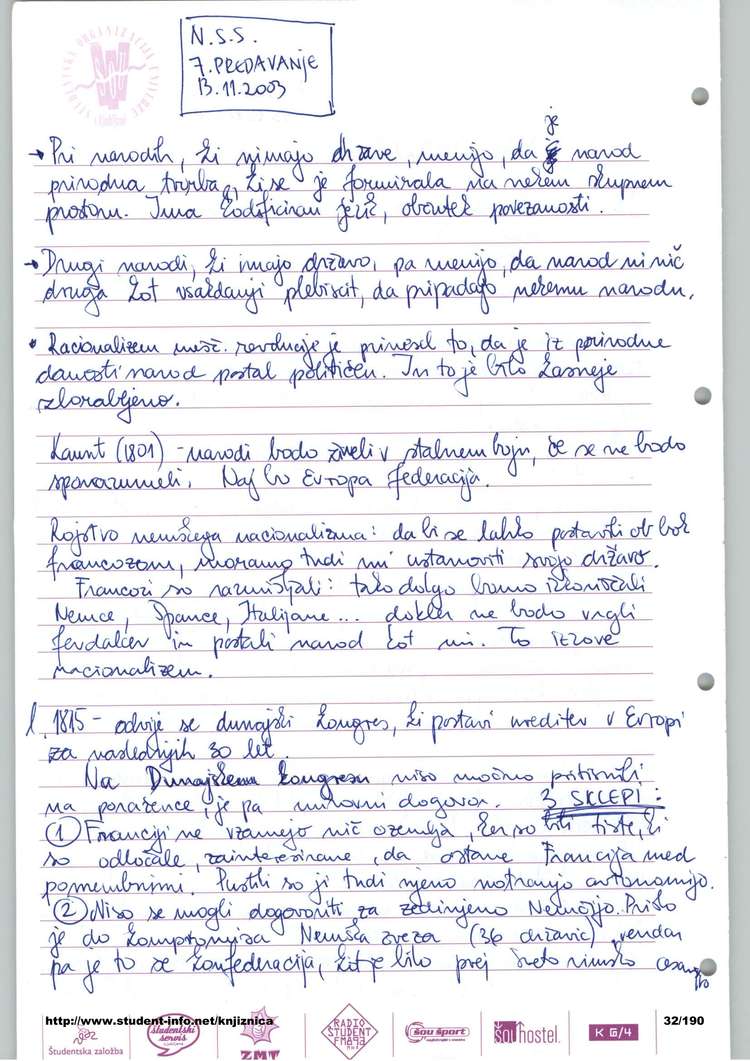 N.S.S.
7. PREDAVANJE
13.11.2003
je
→ Pri narodih, ki nimajo države, menijo, da narod
prirodna tvorba, ki se je formirala na nekem skupnem
prostoru. Ima kodificiran jezik, občutek povezanosti.
→ Drugi narodi, ki imajo državo, pa menijo, da narod ni nič
druga kot vsakdanji plebiscit, da pripadajo nekemu narodu.
• Racionalizem mešč. revolucije je prinesel to, da je iz prirodne
danosti narod postal političen. In to je bilo kasneje
zlorabljeno.
Kaunt (1801) - narodi bodo živeli v stalnem boju, če se ne bodo
sporazumeli. Naj bo Evropa federacija.
Rojstvo nemškega nacionalizma: da bi se lahko postavili ob bok
francozom, moramo tudi mi ustanoviti svojo državo.
Francozi so razmišljali: tako dolgo bomo izkoriščali
Nemce, Špance, Italijane... dokler ne bodo vrgli
fevdalcev in postali narod kot mi. To izzove
nacionalizem.
l. 1815 - odvije se dunajski kongres, ki postavi ureditev v Evropi
za naslednjih 30 let.
Na Dunajskem kongresu niso močno pritisnili
na poražence, je pa mirovni dogovor. 3 SKLEPI:
① Franciji ne vzamejo nič ozemlja, ker so bili tiste, ki
so odločale, zainteresirane, da ostane Francija med
pomembnimi. Pustili so ji tudi njeno notranjo avtonomijo.
② Niso se mogli dogovoriti za zedinjeno Nemčijo. Prišlo
je do kompromisa Nemška zveza (36 državic), vendar
pa je to že konfederacija, kot je bilo prej sveto rimsko cesarstvo
http://www.student-info.net/knjiznica
32/190
Študentska založba
študentski servis
ZMT
RADIO STUDENT FM89,3 MHz
šou šport
šouhostel.
K G/4